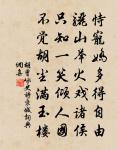 恃寵嬌多得自由
驪山举火戲諸侯
只知一笑傾人國
不覺胡塵滿玉楼
胡曾詠史詩褒城詞典
網集